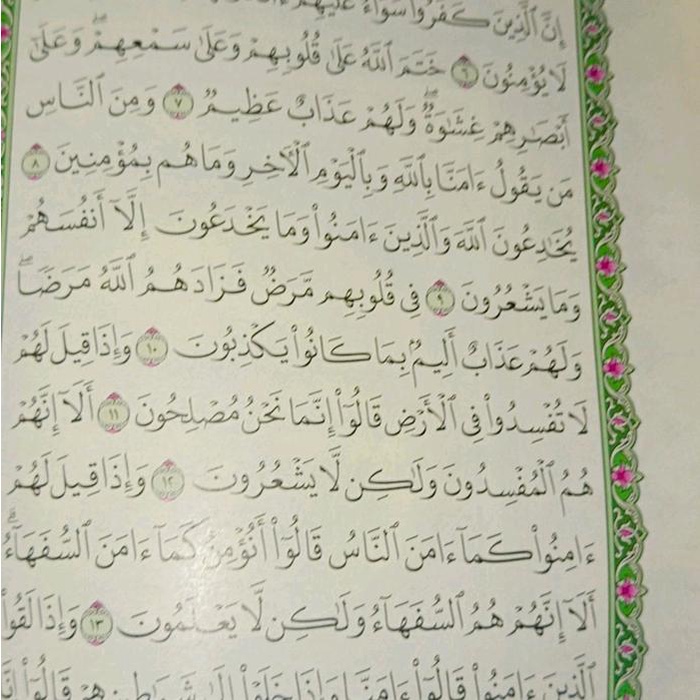 إِنَّ ٱلَّذِينَ كَفَرُوا۟ سَوَآءٌ عَلَيْهِمْ
لَا يُؤْمِنُونَ ٦ خَتَمَ ٱللَّهُ عَلَىٰ قُلُوبِهِمْ وَعَلَىٰ سَمْعِهِمْ ۖ وَعَلَىٰٓ
أَبْصَـٰرِهِمْ غِشَـٰوَةٌ ۖ وَلَهُمْ عَذَابٌ عَظِيمٌ ٧ وَمِنَ ٱلنَّاسِ
مَن يَقُولُ ءَامَنَّا بِٱللَّهِ وَبِٱلْيَوْمِ ٱلْـَٔاخِرِ وَمَا هُم بِمُؤْمِنِينَ ٨
يُخَـٰدِعُونَ ٱللَّهَ وَٱلَّذِينَ ءَامَنُوا۟ وَمَا يَخْدَعُونَ إِلَّآ أَنفُسَهُمْ
وَمَا يَشْعُرُونَ ٩ فِى قُلُوبِهِم مَّرَضٌ فَزَادَهُمُ ٱللَّهُ مَرَضًا ۖ
وَلَهُمْ عَذَابٌ أَلِيمٌۢ بِمَا كَانُوا۟ يَكْذِبُونَ ١٠ وَإِذَا قِيلَ لَهُمْ
لَا تُفْسِدُوا۟ فِى ٱلْأَرْضِ قَالُوٓا۟ إِنَّمَا نَحْنُ مُصْلِحُونَ ١١ أَلَآ إِنَّهُمْ
هُمُ ٱلْمُفْسِدُونَ وَلَـٰكِن لَّا يَشْعُرُونَ ١٢ وَإِذَا قِيلَ لَهُمْ
ءَامِنُوا۟ كَمَآ ءَامَنَ ٱلنَّاسُ قَالُوٓا۟ أَنُؤْمِنُ كَمَآ ءَامَنَ ٱلسُّفَهَآءُ ۗ
أَلَآ إِنَّهُمْ هُمُ ٱلسُّفَهَآءُ وَلَـٰكِن لَّا يَعْلَمُونَ ١٣ وَإِذَا لَقُوا۟
ٱلَّذِينَ ءَامَنُوا۟ قَالُوٓا۟ ءَامَنَّا وَإِذَا خَلَوْا۟ إِلَىٰ شَيَـٰطِينِهِمْ قَالُوٓا۟